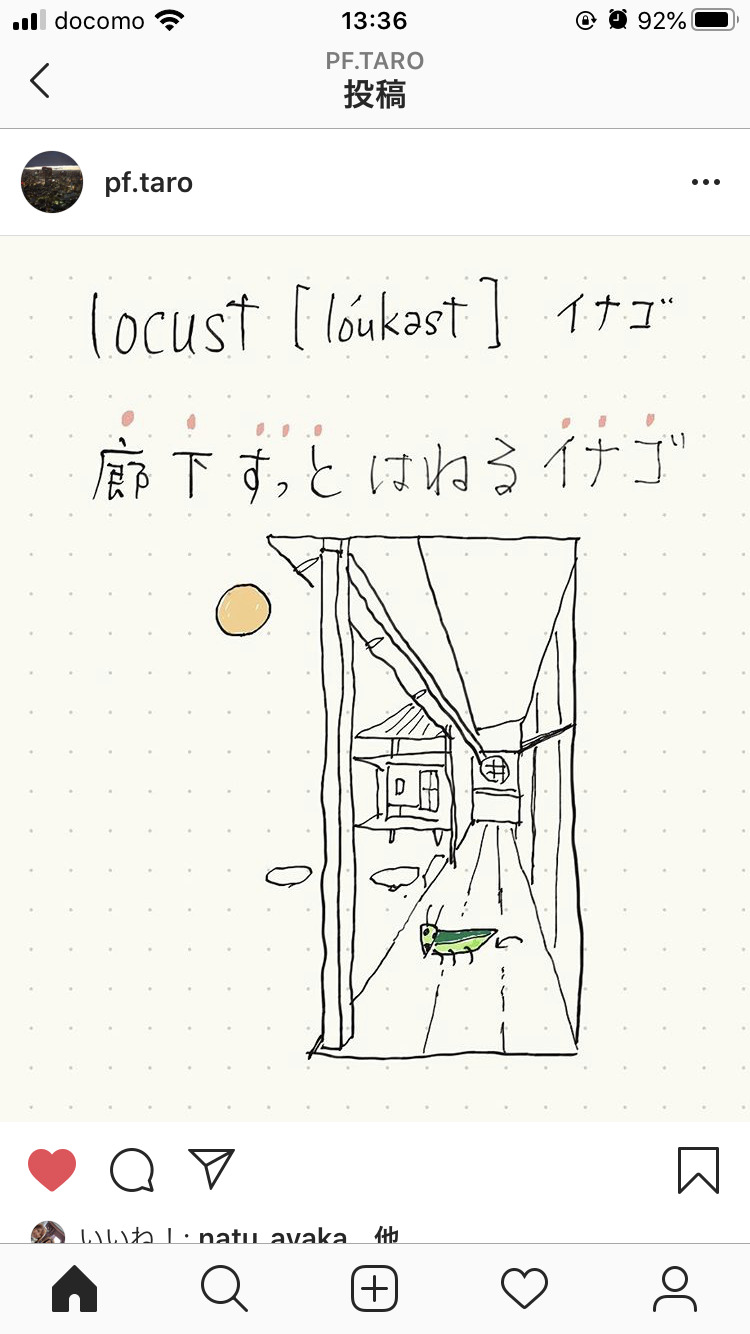 docomo 13:36 92%
PF.TARO
投稿
pf.taro
locust [lóukəst] イナゴ
廊下すっとはねるイナゴ
いいね！: natu_ayaka、他